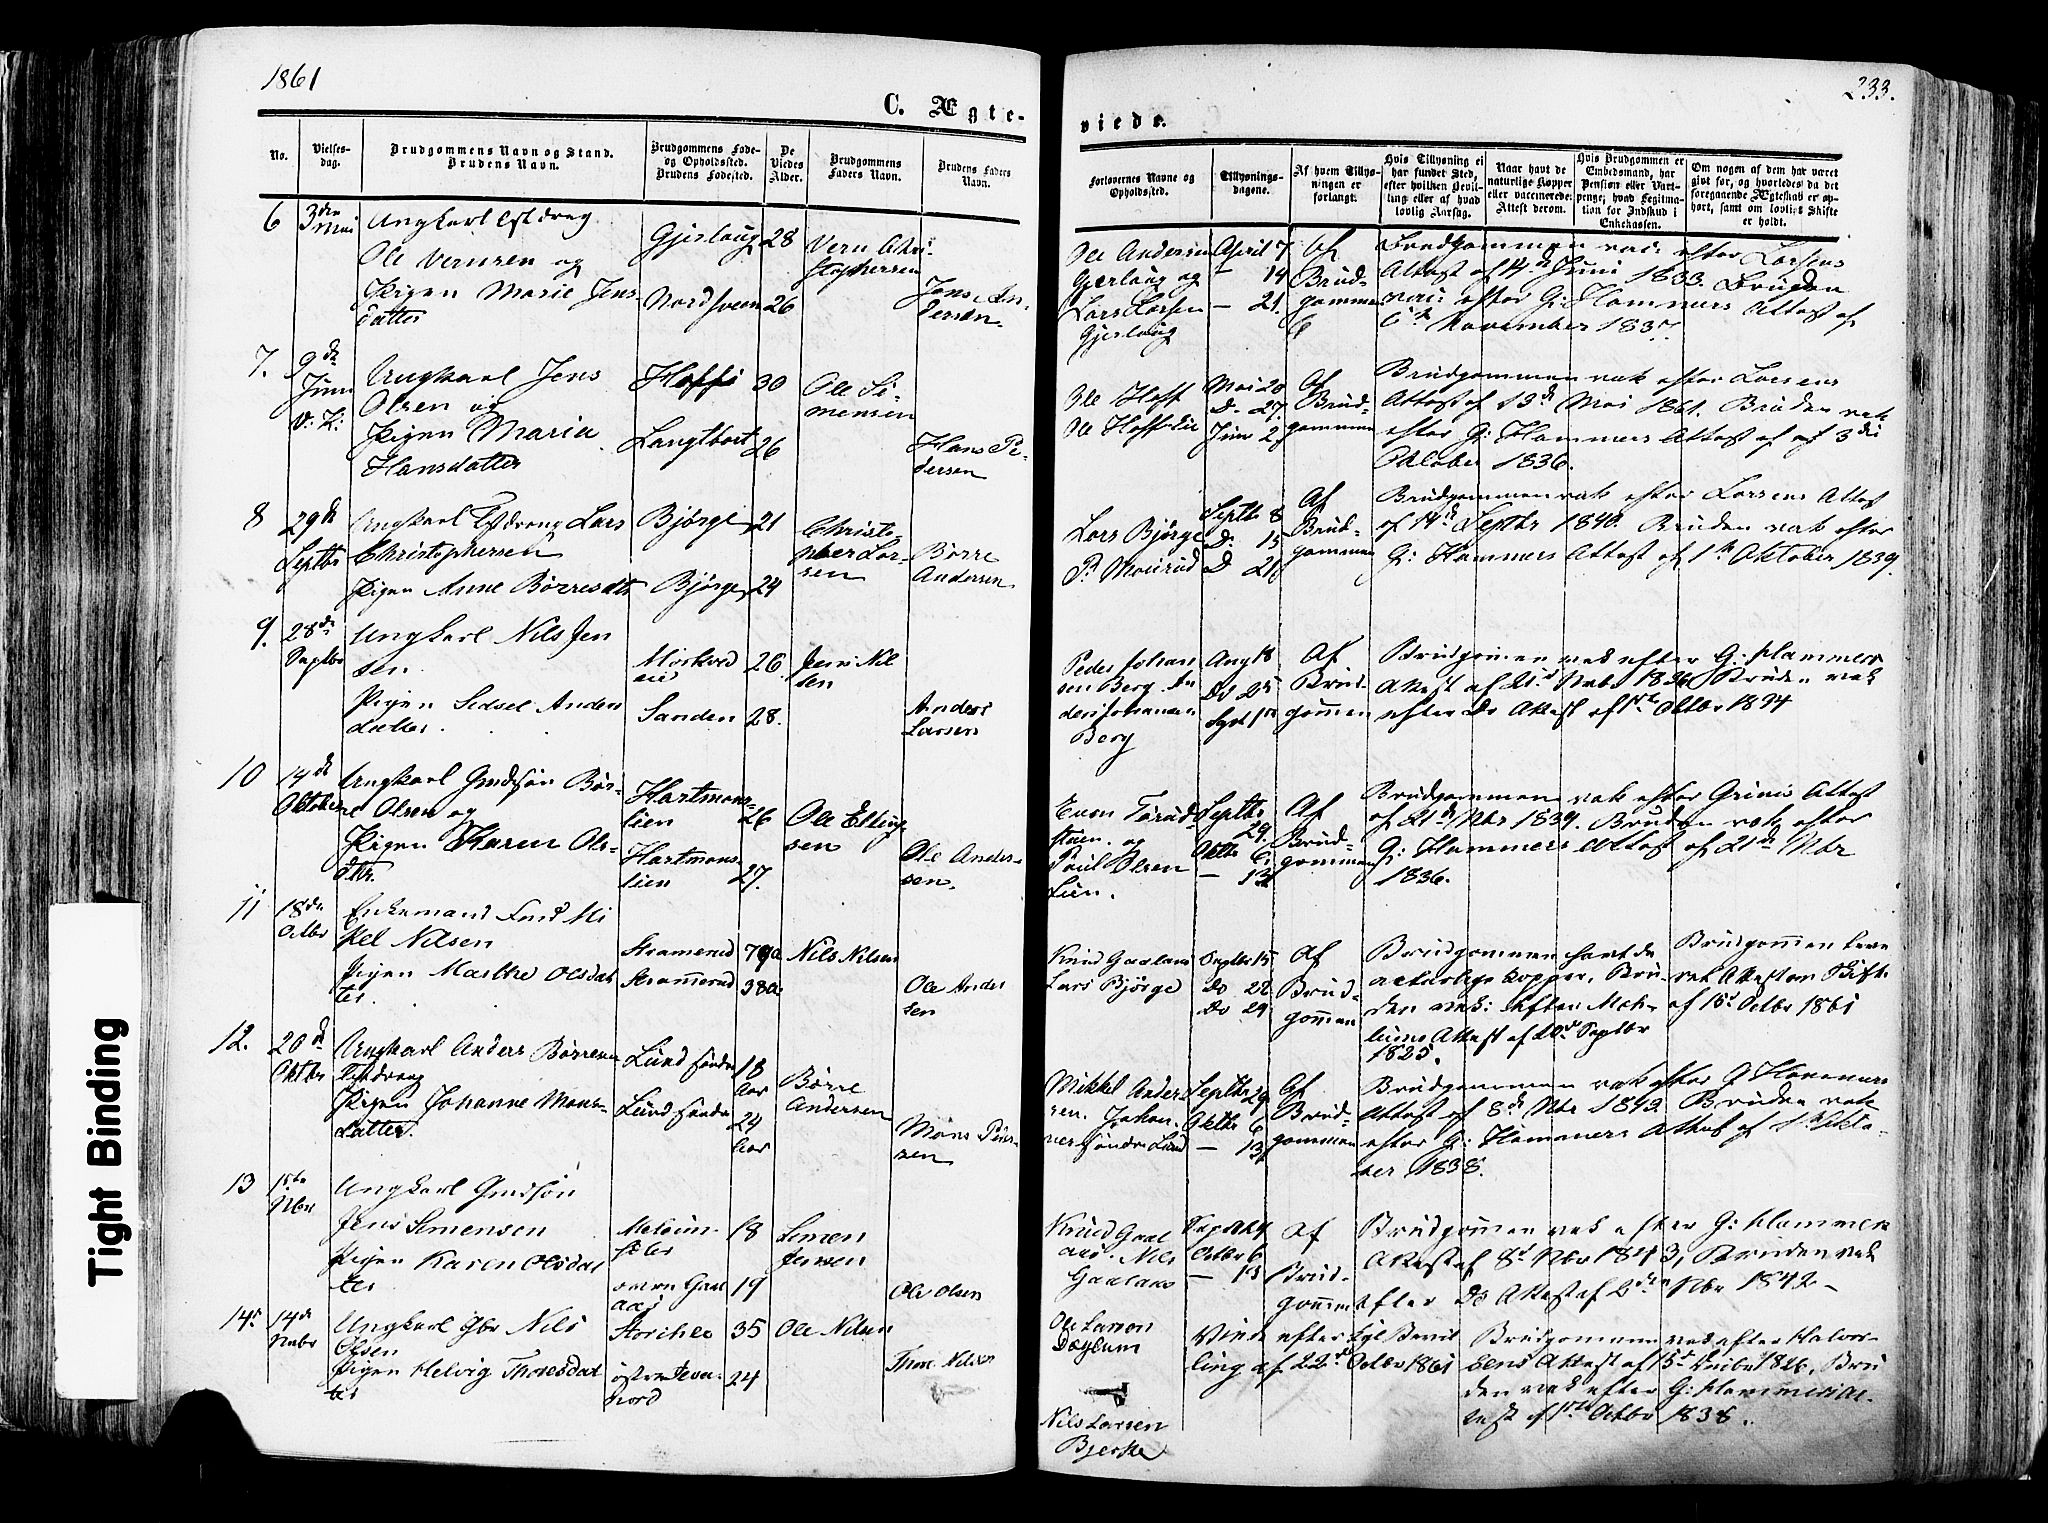 1861
233.
C. Ægte-
viede.
No.
Vielses-
dag.
Brudgommens Navn og Stand.
Brudens Navn.
Brudgommens Føde-
og Opholdssted.
Brudens Fødested.
De
Viedes
Alder.
Brudgommens
Faders Navn.
Brudens Faders
Navn.
Forlovernes Navne og
Opholdssted.
Tillysnings-
dagene.
Af hvem Tillys-
ningen er
forlangt.
Hvis Tillysning ei
har fundet Sted,
efter hvilken Bevil-
ling eller af hvad
lovlig Aarsag.
Naar havt de
naturlige Kopper
eller vaccinerede:
Attest derom.
Hvis Brudgommen er
Embedsmand, har
Pension eller Vart-
penge; hvad Legitima-
tion for Indskud i
Enkekassen.
Om nogen af dem har været
gift før, og hvorledes da det
foregaaende Ægteskab er op-
hørt, samt om lovligt Skifte
er holdt.
6
3die
Mai
Ungkarl
Ole Vernsen og
Pigen Marie Jens-
datter
Gjerlaug
Nordsveen
28
26
Vern Chri-
stophersen
Jens An-
dersen.
Ole Andersen
Gjerlaug og
Lars Larsen
Gjerlaug
April 7
— 14
— 21.
Af
Brud-
gommen
Brudgommen vac: efter Larsens
Attest af 14de Juni 1833. Bruden
vac: efter G: Hammers Attest af
6te November 1837.
7.
9de
Juni
V: K:
Ungkarl Jens
Olsen og
Pigen Maria
Hansdatter
Hoff
Langtbort
30
26
Ole Si-
mensen
Hans Pe-
dersen
Ole Hoff
Ole Hoffslie
Mai 20
D. 27.
Juni 2
Af
Brud-
gommen
Brudgommen vak efter Larsens
Attest af 13de Mai 1861. Bruden vak
efter G: Hammers Attest af af 3die
Oktober 1836.
8
29de
Septbr
Ungkarl Lars
Christophersen
Pigen Anne Børresdtr
Bjørge
Bjørge
21
24
Christo-
pher Lar-
sen
Børre
Andersen
Lars Bjørge
P. Mourud
Septbr 8
D. 15
D 21
Af
Brud-
gommen
Brudgommen vak efter Larsens Attest
af 14de Septbr 1840. Bruden vak efter
G: Hammers Attest af 1ste Oktober 1839.
9.
28de
Septbr
Ungkarl Nils Jen
sen
Pigen Sidsel Anders
datter.
Sanden
26
28.
Jens Nil
sen
Anders
Larsen
Peder Johan
sen Berg. An
ders Johansen
Berg
Aug 18
Do 25
Sept 1ste
Af
Brud-
gommen
Brudgommen vak efter G: Hammers
Attest af 21de Nvbr 1836. Bruden vak
efter Do Attest af 1ste Octbr 1834
10
14de
Oktober
Ungkarl Gmdsøn Bør-
re Olsen og
Pigen Karen Ols-
dtr.
Hartmans-
lien
Hartmans
lien
26
27.
Ole Elling
sen
Ole Ander-
sen.
Even Tørud-
stuen. og
Poul Olsen
Lien.
Septbr
29.
Oktbr 6.
— 13
Af
Brud-
gommen
Brudgommen vak efter Grinis Attest
af 21de Nbr 1839. Bruden vak efter
G: Hammers Attest af 21de Nbr
1836.
11
18de
Octbr
Enkemand Mi
kel Nilsen
Pigen Marthe Olsdat
ter.
Strammerud
Strammerud
38a
Nils Nilsen
Ole Ander
sen
Knud Gaalaas
Lars Bjørge
Septbr 15
Do 22
Do 29
Af
Brud-
gommen
Brudgommen havt de
naturlige Kopper, Bru-
den vak: efter Meh-
lums Attest af Septbr
1825.
Brudgommen leve
ret Attest om Skifte
af 15de Octbr 1861
12.
20de
Oktbr
Ungkarl Anders Børresen
Pigen Johanne Mons-
datter.
Lund søndre
Lund søndre
18
Aar
24
Aar
Børre
Andersen
Mons Peder-
sen
Mikkel Ander-
sen. Johan-
nes søndre Lund
Septbr 29
Oktbr 6
— 13
Af
Brud-
gommen
Brudgommen vak efter G Hammers
Attest af 8de Nbr 1843. Bruden vak
efter G: Hammers Attest af 1ste Okto-
ber 1838.
13
1ste
Nbr
Ungkarl Gmdsøn
Jens Simensen
Pigen Karen Olsdat
ter
Gaal
aas
18
19
Simen
Jensen
Ole Olsen
Knud Gaal
aas. Nils
Gaalaas
Octbr 6
— 13
Af
Brud-
gommen
Brudgommen vak efter G: Hammers
Attest af 8de Nbr 1843, Bruden vak
efter Do Attest af 2den Nbr 1842 —
14.
14de
Nvbr
Ungkarl Gbr Nils
Olsen
Pigen Helvig Thoresdat
ter
Storihle
østre Jevn-
hord
35
24
Ole Nilsen
Thore Nilsen
Ole Larsen
Døglum
Nils Larsen
Bjerke
Viede efter Kgl Bevil-
ling af 22de Octbr 1861
Brudgommen vak efter Halvor-
sens Attest af 15de 1826, Bru
den vak efter G: Hammers At-
test af 1ste Octbr 1838.
Tight Binding